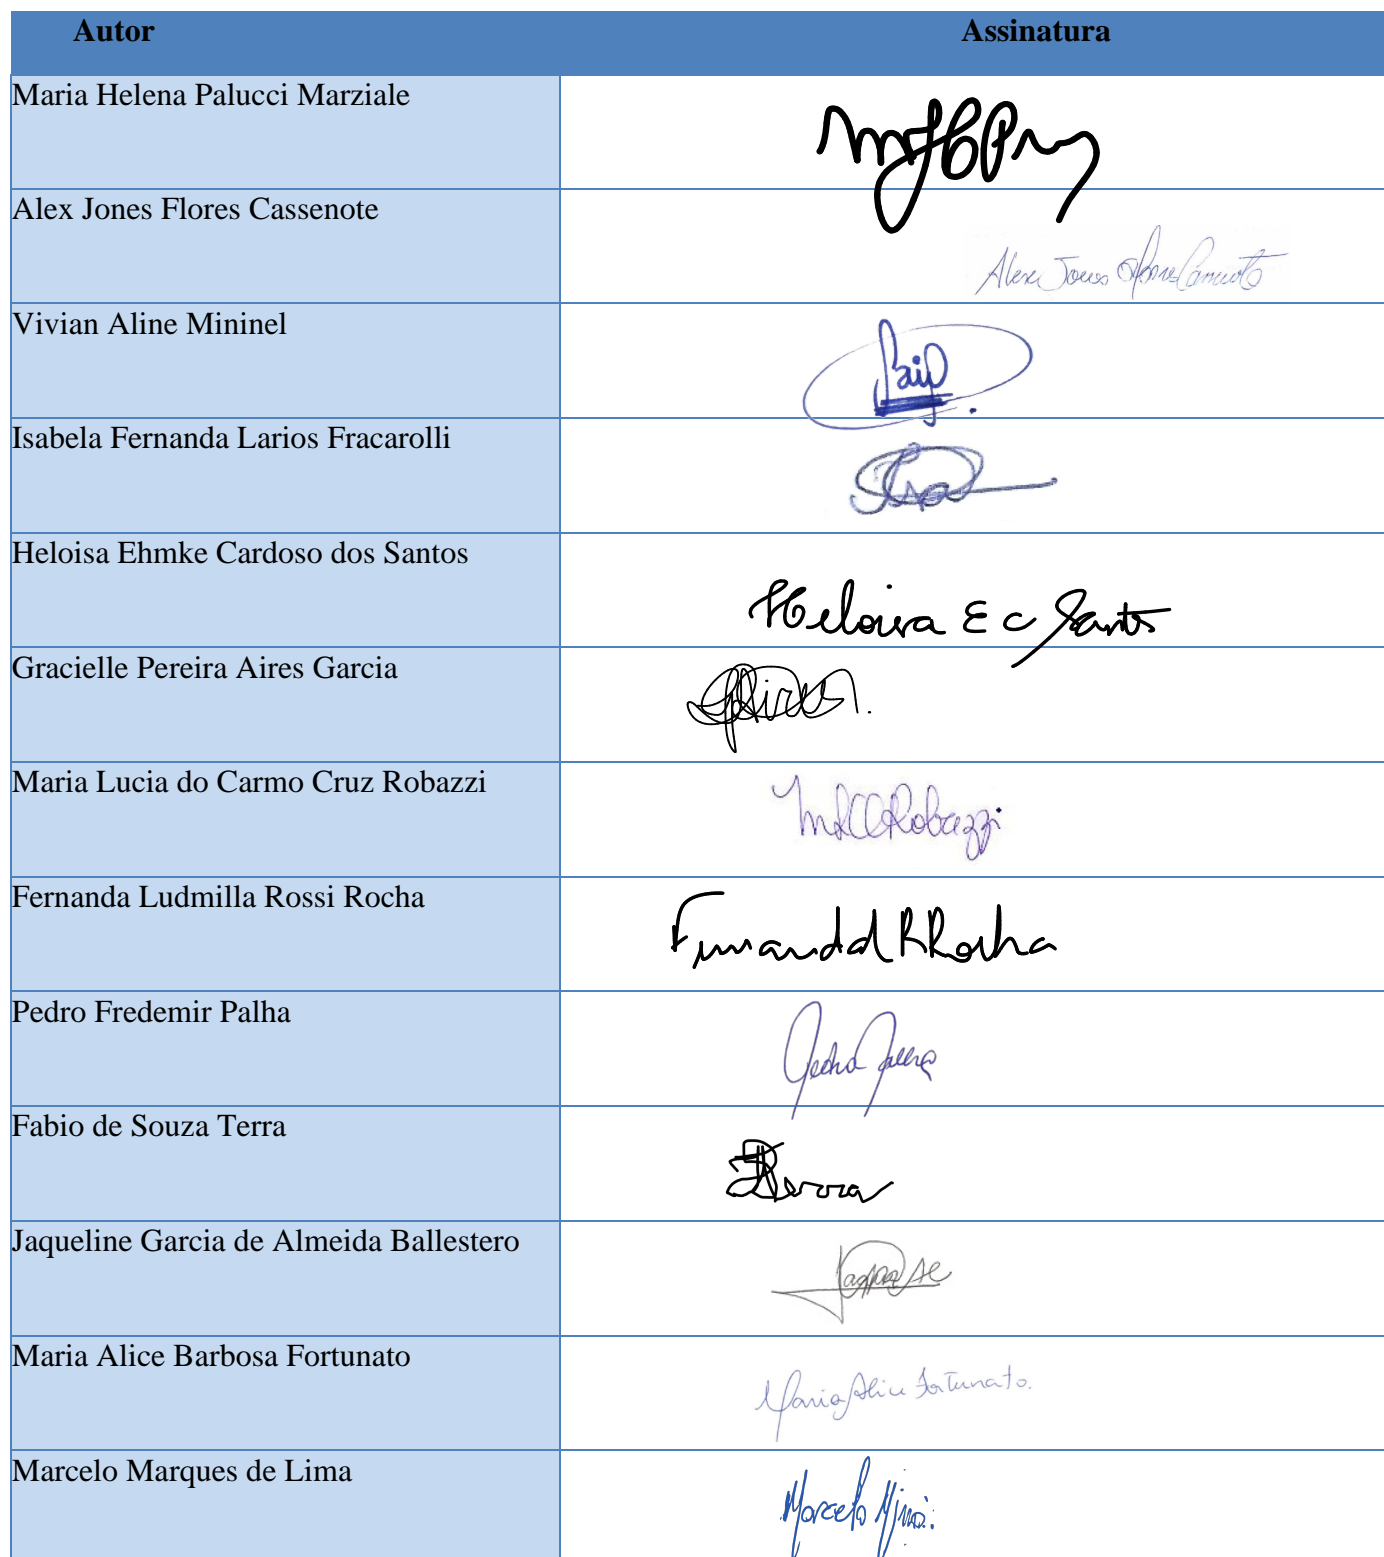 Autor Assinatura
Maria Helena Palucci Marziale
Alex Jones Flores Cassenote
Alex Jones Flores Cassenote
Vivian Aline Mininel
Isabela Fernanda Larios Fracarolli
Heloisa Ehmke Cardoso dos Santos
Heloisa E C Santos
Gracielle Pereira Aires Garcia
Maria Lucia do Carmo Cruz Robazzi
MLCCRobazzi
Fernanda Ludmilla Rossi Rocha
Fernanda L R Rocha
Pedro Fredemir Palha
Pedro Palha
Fabio de Souza Terra
Jaqueline Garcia de Almeida Ballestero
Maria Alice Barbosa Fortunato
Maria Alice Fortunato.
Marcelo Marques de Lima
Marcelo